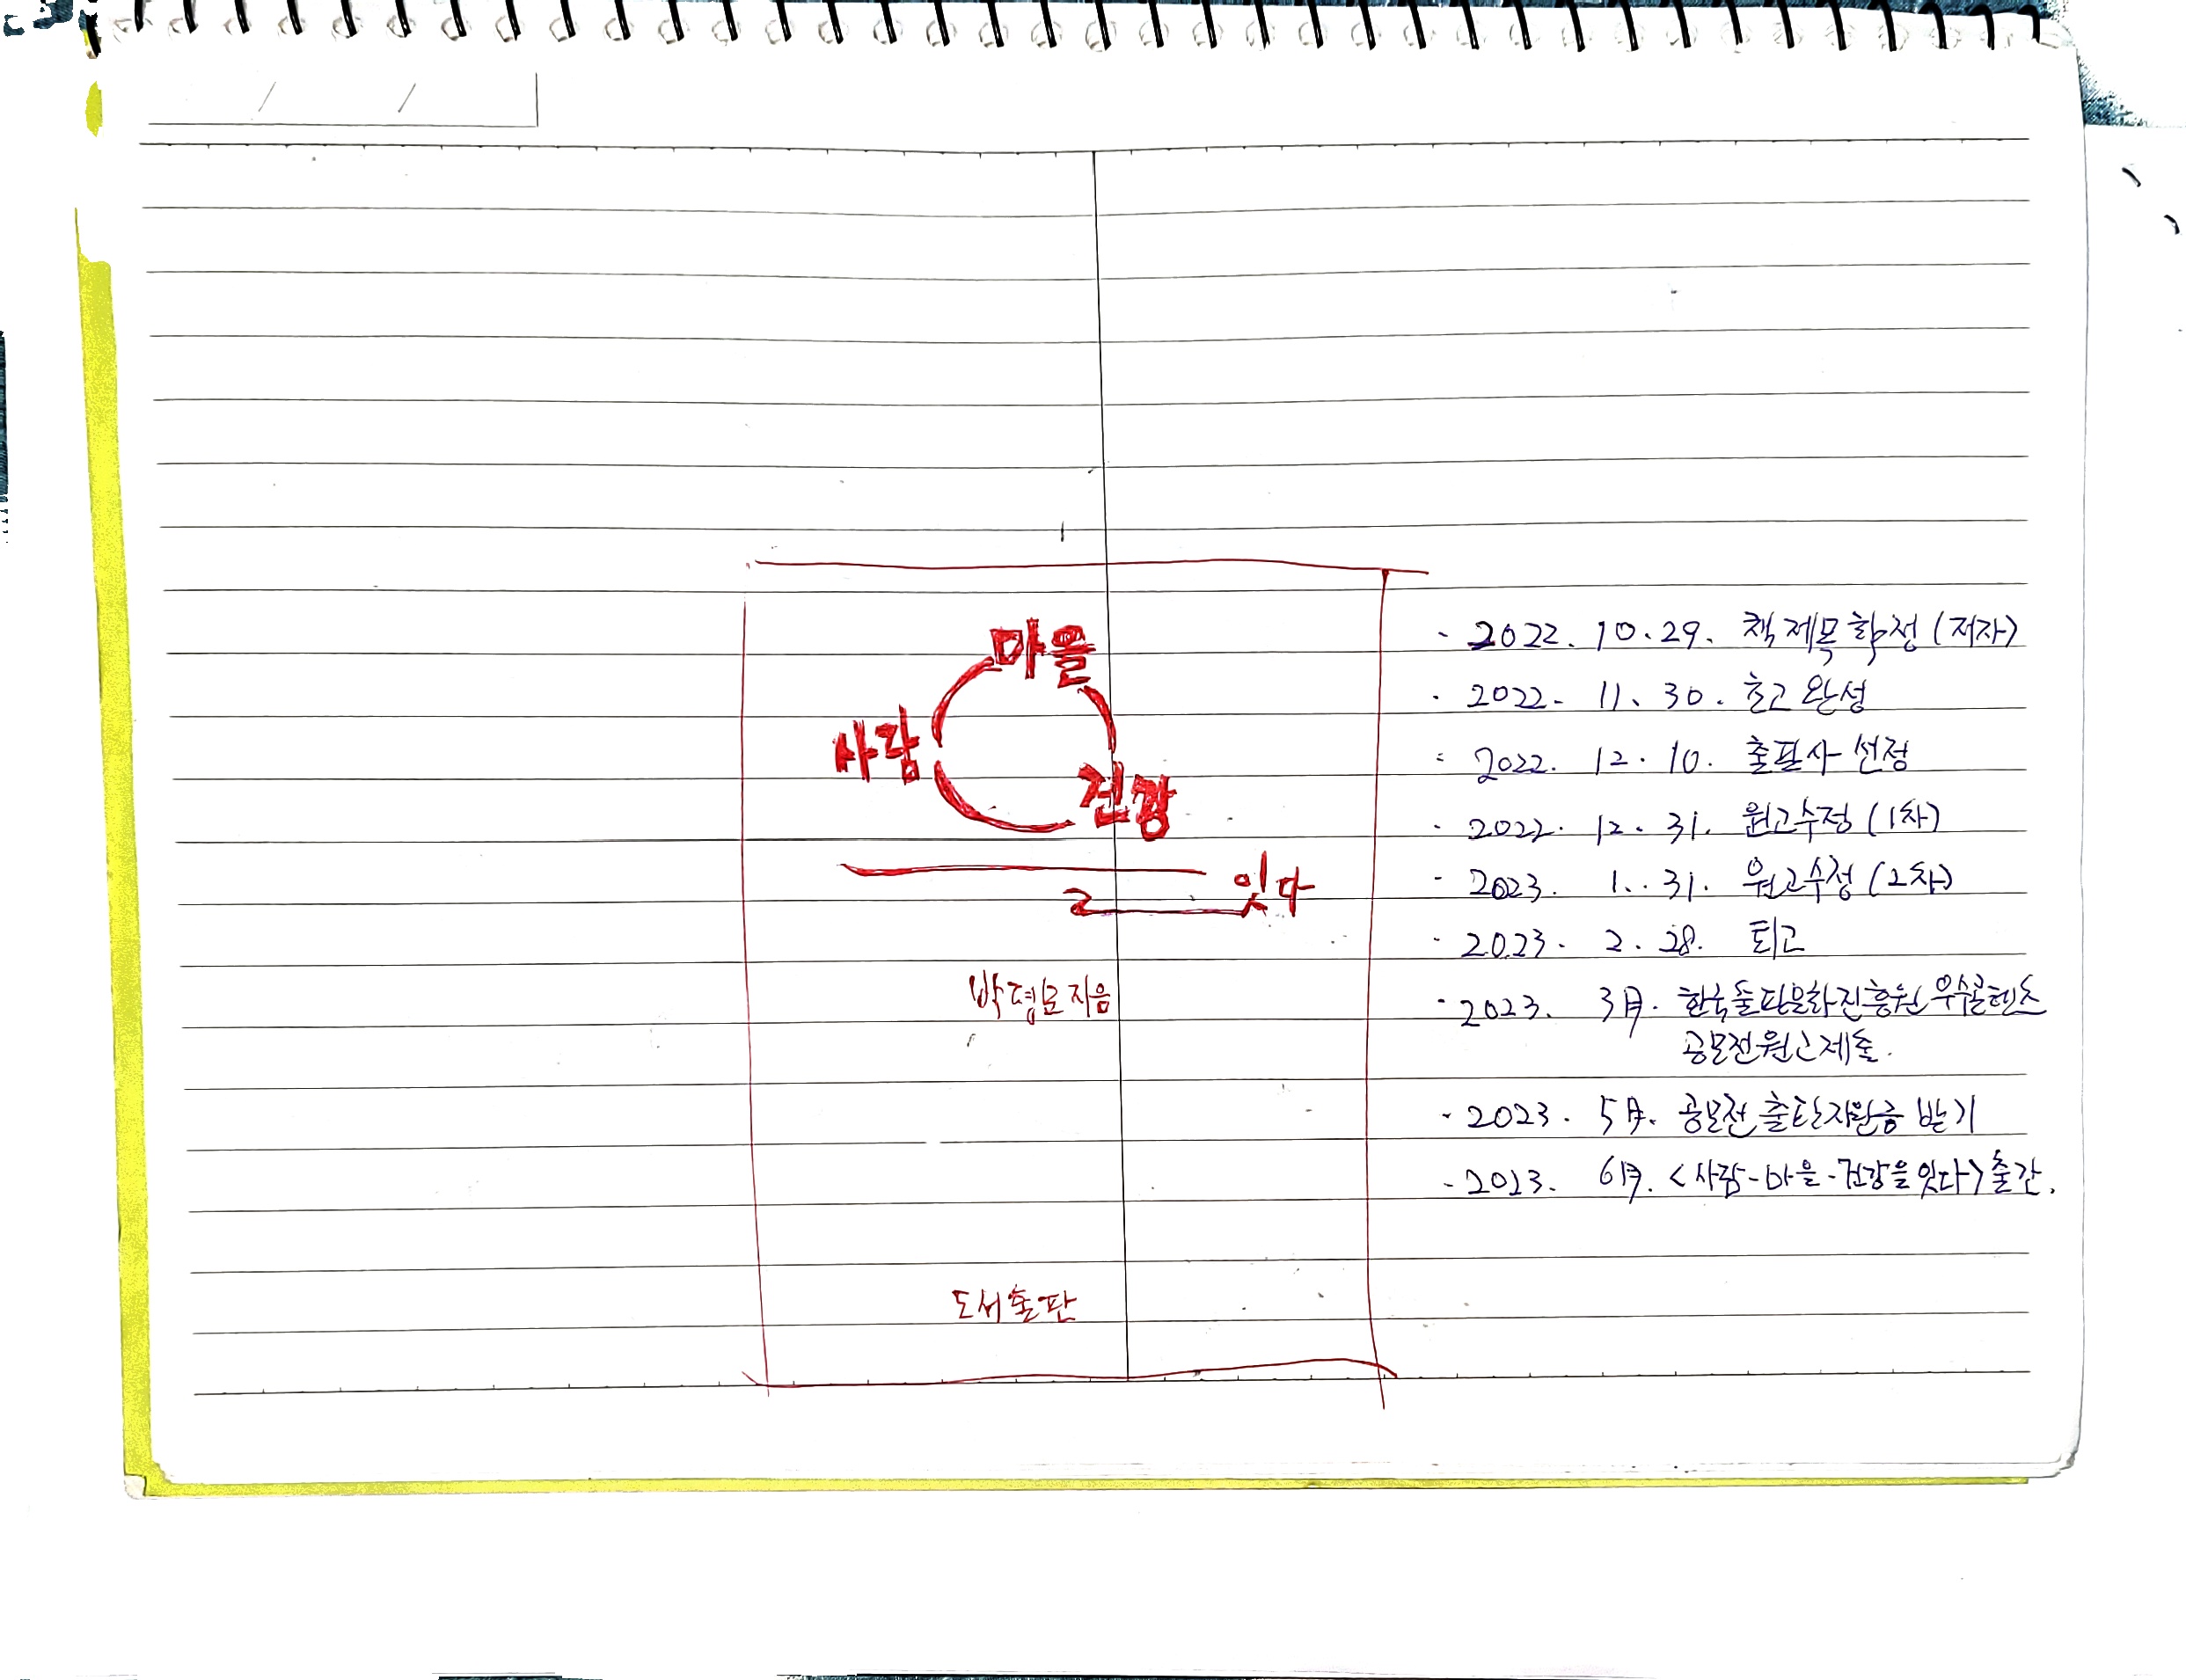 마을
사람
건강
잇다
지음
도서출판
· 2022. 10. 29. 책 제목 확정 (저자)
· 2022. 11. 30. 초고 완성
· 2022. 12. 10. 출판사 선정
· 2022. 12. 31. 원고수정 (1차)
· 2023. 1. 31. 원고수정 (2차)
· 2023. 2. 28. 퇴고
· 2023. 3月. 한국출판문화진흥원 우수콘텐츠
공모전 원고 제출.
· 2023. 5月. 공모전 출판지원금 받기
· 2023. 6月. <사람-마을-건강을 잇다> 출간.